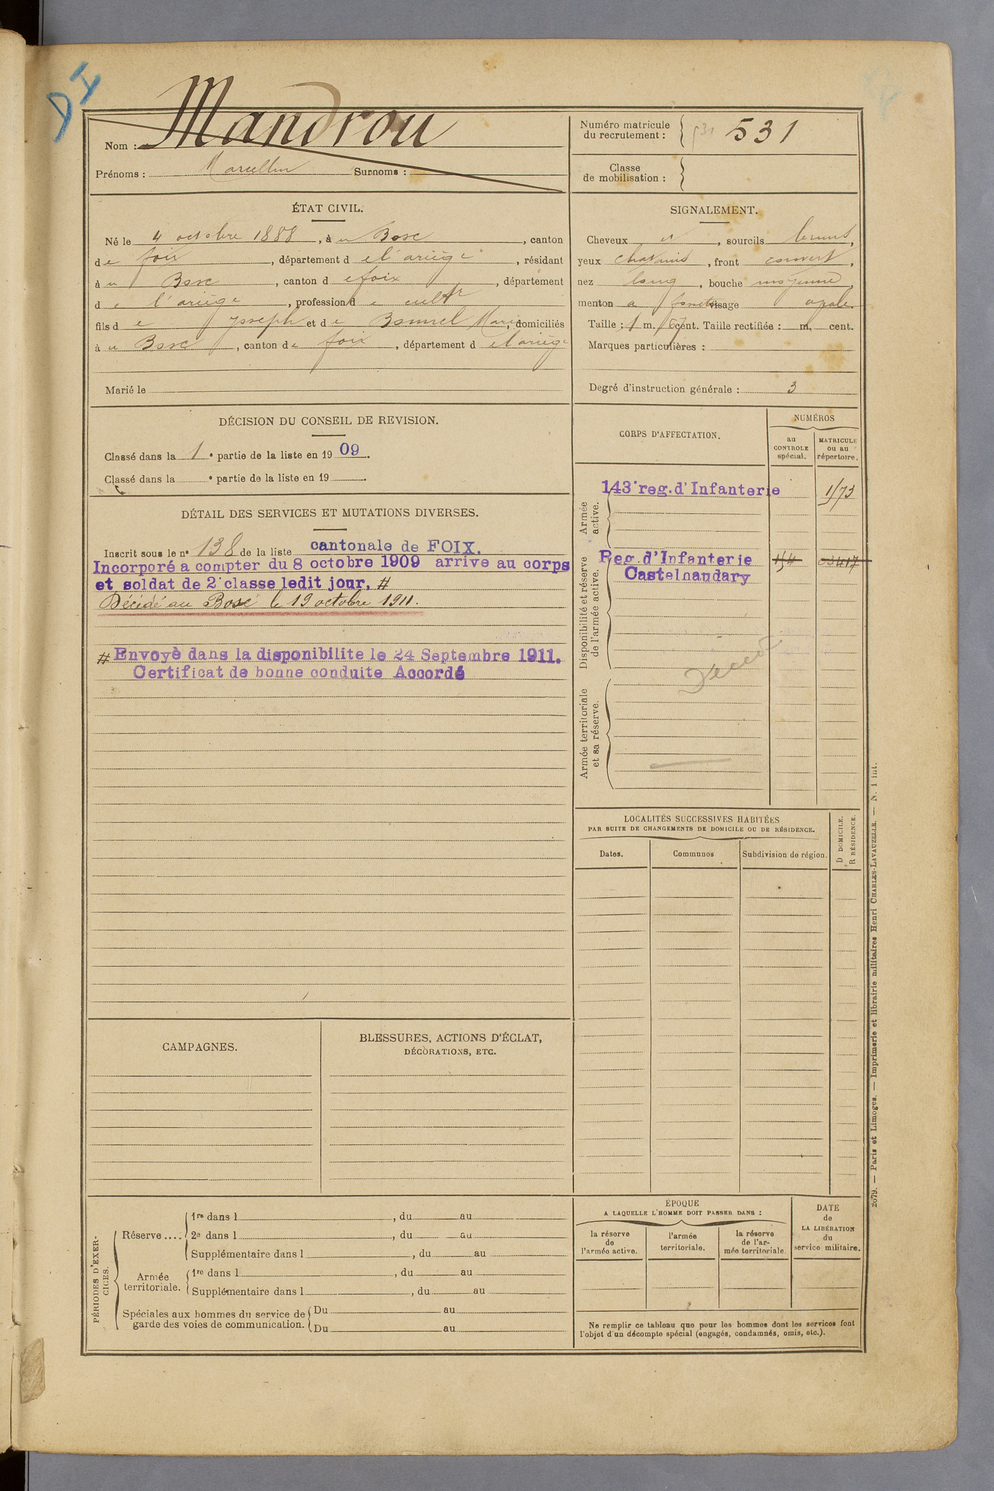 DI
Nom : Mandrou
Prénoms : Marcellin Surnoms :
Numéro matricule du recrutement : 531 531
Classe de mobilisation :
ÉTAT CIVIL.
Né le 4 octobre 1888, à u Bosc, canton
de foix, département d e l'ariège, résidant
à u Bosc, canton d e foix, département
d e l'ariège, profession d e cultr
fils d e Joseph et d e Bonnel Marie, domiciliés
à u Bosc, canton de foix, département d e l'ariège
Marié le
SIGNALEMENT.
Cheveux et, sourcils bruns,
yeux chatains, front couvert,
nez long, bouche moyenne,
menton à fossette visage ovale.
Taille : 1 m. cent. Taille rectifiée : m. cent.
Marques particulières :
Degré d'instruction générale : 3
DÉCISION DU CONSEIL DE REVISION.
Classé dans la 1 e partie de la liste en 1909.
Classé dans la e partie de la liste en 19
DÉTAIL DES SERVICES ET MUTATIONS DIVERSES.
Inscrit sous le n° 138 de la liste cantonale de FOIX.
Incorporé a compter du 8 octobre 1909 arrive au corps
et soldat de 2e classe ledit jour, #
Décédé au Bosc le 19 octobre 1911.
# Envoyè dans la disponibilite le 24 Septembre 1911.
Certificat de bonne conduite Accordé
CORPS D'AFFECTATION.
NUMÉROS
au CONTROLE spécial.
MATRICULE ou au répertoire.
Armée active.
143e reg. d'Infanterie 1/73
Disponibilité et réserve de l'armée active.
Reg. d'Infanterie
Castelnaudary
Décédé
Armée territoriale et sa réserve.
LOCALITÉS SUCCESSIVES HABITÉES
PAR SUITE DE CHANGEMENTS DE DOMICILE OU DE RÉSIDENCE.
Dates. Communes Subdivision de région. D DOMICILE. R RÉSIDENCE.
CAMPAGNES.
BLESSURES, ACTIONS D'ÉCLAT,
DÉCORATIONS, ETC.
PÉRIODES D'EXERCICES.
Réserve .... 1re dans l , du au
2e dans l , du au
Supplémentaire dans l , du au
Armée territoriale. 1re dans l , du au
Supplémentaire dans l , du au
Spéciales aux hommes du service de garde des voies de communication. Du au
Du au
ÉPOQUE
A LAQUELLE L'HOMME DOIT PASSER DANS :
la réserve de l'armée active.
l'armée territoriale.
la réserve de l'armée territoriale
DATE de LA LIBÉRATION du service militaire.
Ne remplir ce tableau que pour les hommes dont les services font
l'objet d'un décompte spécial (engagés, condamnés, omis, etc.).
2079. — Paris et Limoges. — Imprimerie et librairie militaires Henri CHARLES-LAVAUZELLE. — N. 1 int.